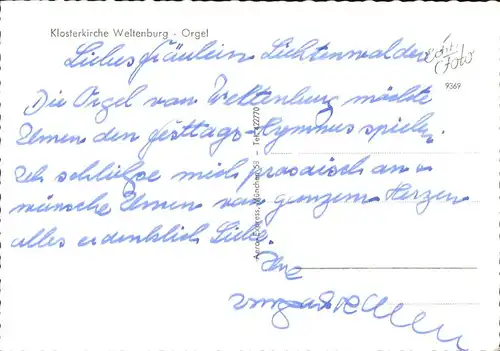 Klosterkirche Weltenburg · Orgel
Echt Foto
9369
Liebes Fräulein Lichtenwalder!
Die Orgel von Weltenburg möchte
Ihnen den Festtags-Hymnus spielen.
Ich schließe mich prosaisch an u
wünsche Ihnen von ganzem Herzen
alles erdenklich Liebe.
Ihre
Aero-Express, München 58 — Tel. 422770